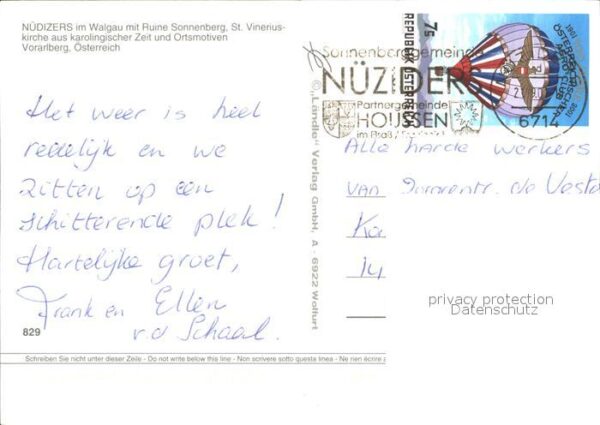 NÜDIZERS im Walgau mit Ruine Sonnenberg, St. Vinerius-
kirche aus karolingischer Zeit und Ortsmotiven
Vorarlberg, Österreich
Het weer is heel
redelijk en we
zitten op een
schitterende plek!
Hartelijke groet,
Frank en Ellen
v.d Schaal.
829
Schreiben Sie nicht unter dieser Zeile - Do not write below this line - Non scrivere sotto questa linea - Ne rien écrire
© „Ländle" Verlag GmbH, A - 6922 Wolfurt
Sonnenberggemeinde
NÜZIDERS
Partnergemeinde
HOUSSEN
6714
7s
REPUBLIK ÖSTERREICH
1901
ÖSTERREICHISCHER
AERO CLUB
Alle harde werkers
van de Vesta
Ka
privacy protection
Datenschutz